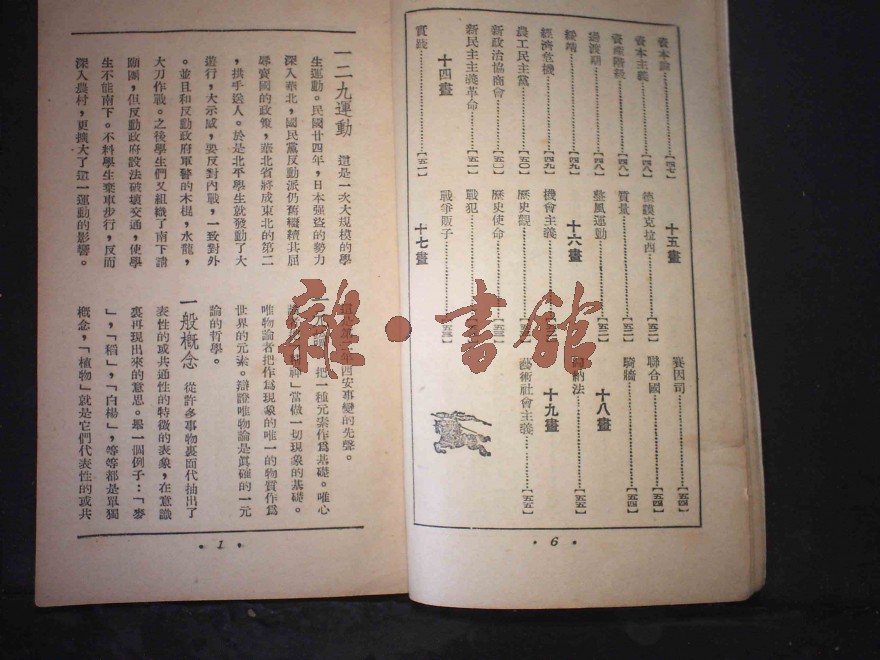 資本論……【四七】
資本主義……【四八】
資產階級……【四八】
過渡期……【四八】
綏靖……【四九】
經濟危機……【四九】
農工民主黨……【五〇】
新政治協商會……【五〇】
新民主主義革命……【五一】
十四畫
實踐……【五二】
十五畫
德謨克拉西……【五二】
質量……【五二】
整風運動……【五二】
十六畫
機會主義
歷史觀
歷史使命
戰犯
戰爭販子……【五三】
十七畫
賽因司……【五四】
聯合國……【五四】
騎牆……【五四】
十八畫
歸納法……【五五】
十九畫
藝術社會主義……【五五】
• 6 •
一二九運動 這是一次大規模的學
生運動。民國廿四年,日本強盜的勢力
深入華北,國民黨反動派仍舊繼續其屈
辱賣國的政策,華北省將成東北的第二
,拱手送人。於是北平學生就發動了大
遊行,大示威,要反對內戰,一致對外
。並且和反動政府軍警的木棍,水龍,
大刀作戰。之後學生們又組織了南下請
願團,但反動政府設法破壞交通,使學
生不能南下。不料學生棄車步行,反而
深入農村,更擴大了這一運動的影響。
年西安事變的先聲。
一元論 把一種元素作為基礎。唯心
「精神」當做一切現象的基礎。
唯物論者把作為現象的唯一的物質作為
世界的元素。辯證唯物論是真確的一元
論的哲學。
一般概念 從許多事物裏面代抽出了
表性的或共通性的特徵的表象,在意識
裏再現出來的意思。舉一個例子:「麥
」,「稻」,「白楊」,等等都是單獨
概念,「植物」就是它們代表性的或共
• 1 •
雜·書館